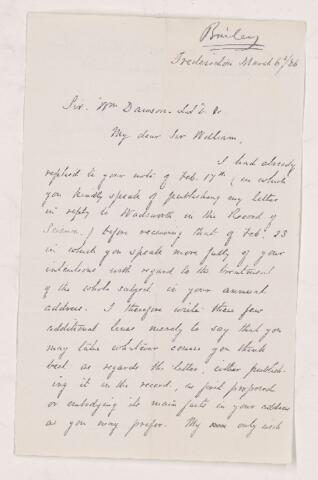 Bailey
Fredericton March 6th/86
Sir. Wm Dawson. L.L.D.
My dear Sir William,
I had already
replied to your note of Feb. 17th (in which
you kindly speak of publishing my letter
in reply to Wadsworth in the Record of
Science,) before receiving that of Feb. 23
in which you speak more fully of your
intentions with regard to the treatment
of the whole subject in your annual
address. I therefore write these few
additional lines merely to say that you
may take whatever course you think
best as regards the letter, either publish-
ing it in the record, as first proposed
or embodying its main facts in your address
as you may prefer. My only wish